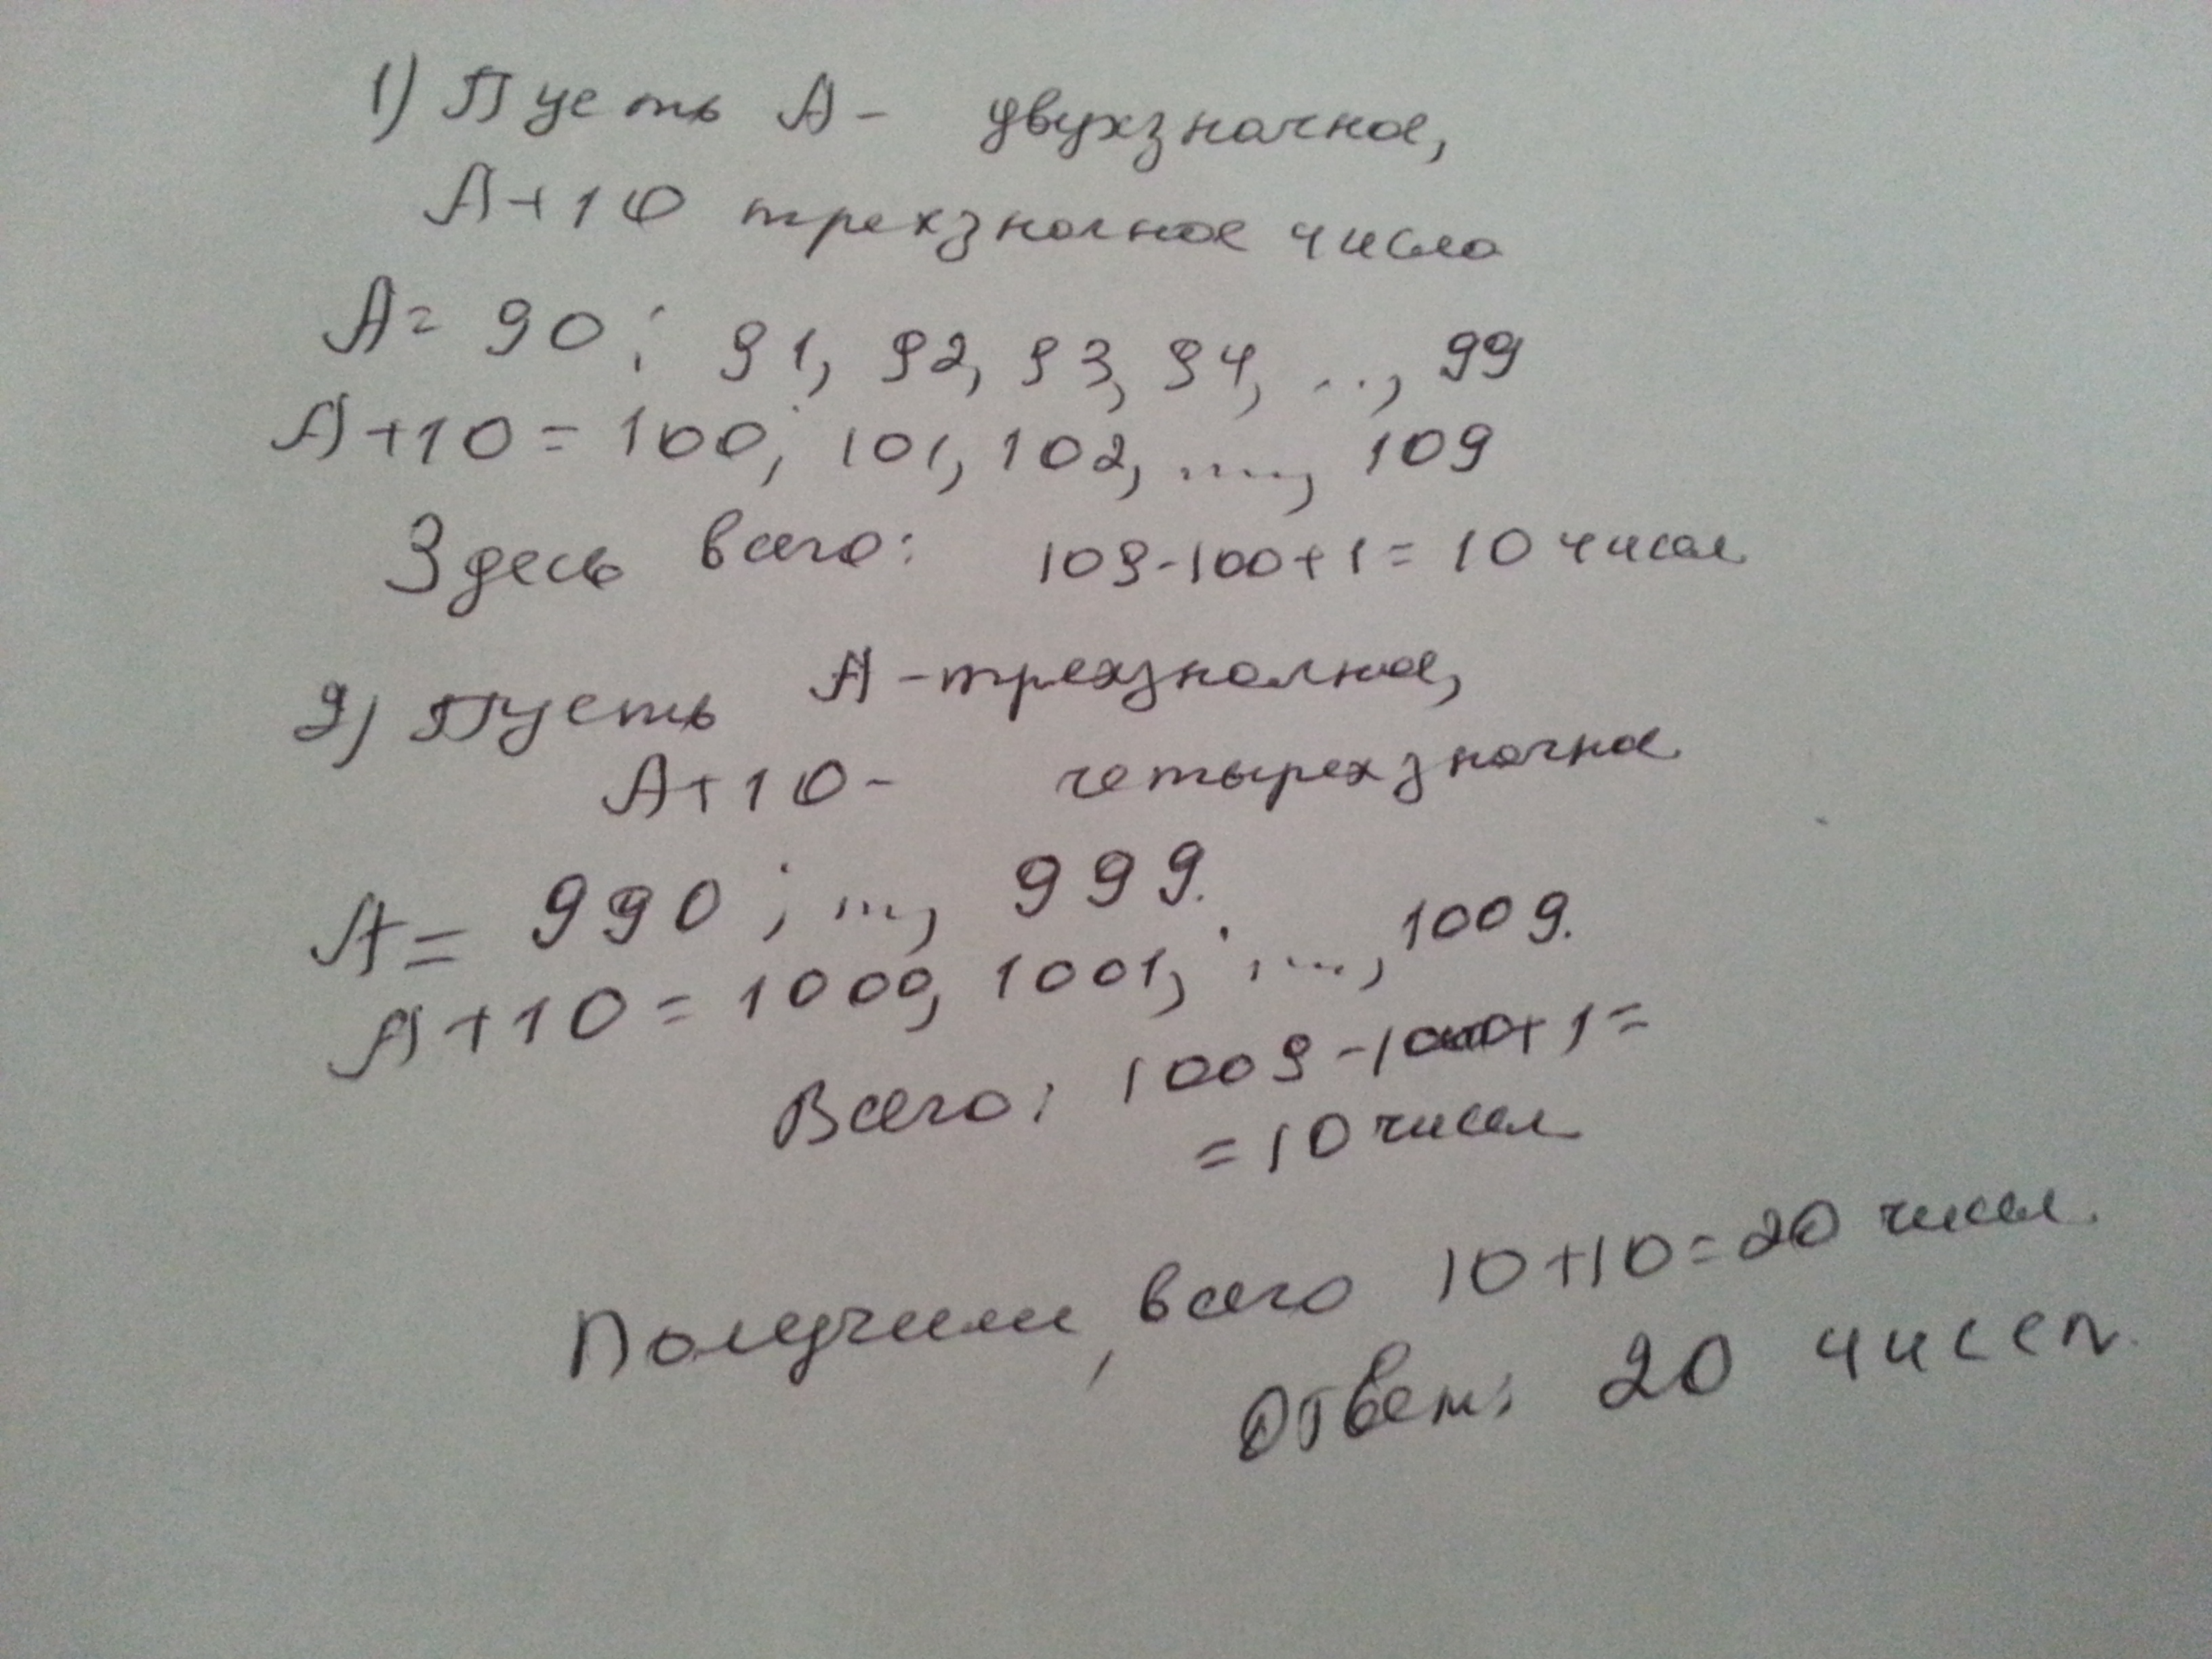 1) Пусть А - двухзначное,
А+10 трехзначное число
А= 90; 91, 92, 93, 94, ..., 99
А+10=100, 101, 102, ...., 109
Здесь всего: 109-100+1=10 чисел
2) Пусть А-трехзначное,
А+10- четырехзначное
А= 990; ..., 999.
А+10=1000, 1001, ...., 1009.
Всего: 1009-1000+1=
=10 чисел
Получили, всего 10+10=20 чисел.
Ответ: 20 чисел.